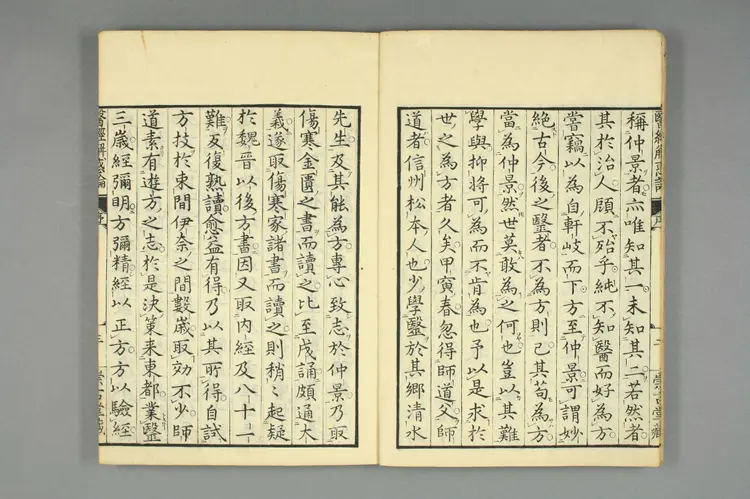 稱仲景者亦唯知其一未知其二若然者
其於治人頤不殆乎純不知醫而好為方
嘗竊以為自軒岐而下方至仲景可謂妙
絕古今後之醫者不為方則已其苟為方
當為仲景然世莫敢為之何也豈以其難
學與抑將可為而不肯為也予以是求於
世之為方者久矣甲寅春忽得師道父師
道者信州松本人也少學醫於其鄉清水
先生及其能為方專心致志於仲景乃取
傷寒金匱之書而讀之比至成誦頗通大
義遂取傷寒家諸書而讀之則稍々起疑
於魏晉以後方書因又取內經及八十一
難反復熟讀愈益有得乃以其所得自試
方技於東間伊奈之間數歲取効不少師
道素有遊方之志於是決策来東都業醫
三歲經彌明方彌精經以正方方以驗經
醫經解惑論
序